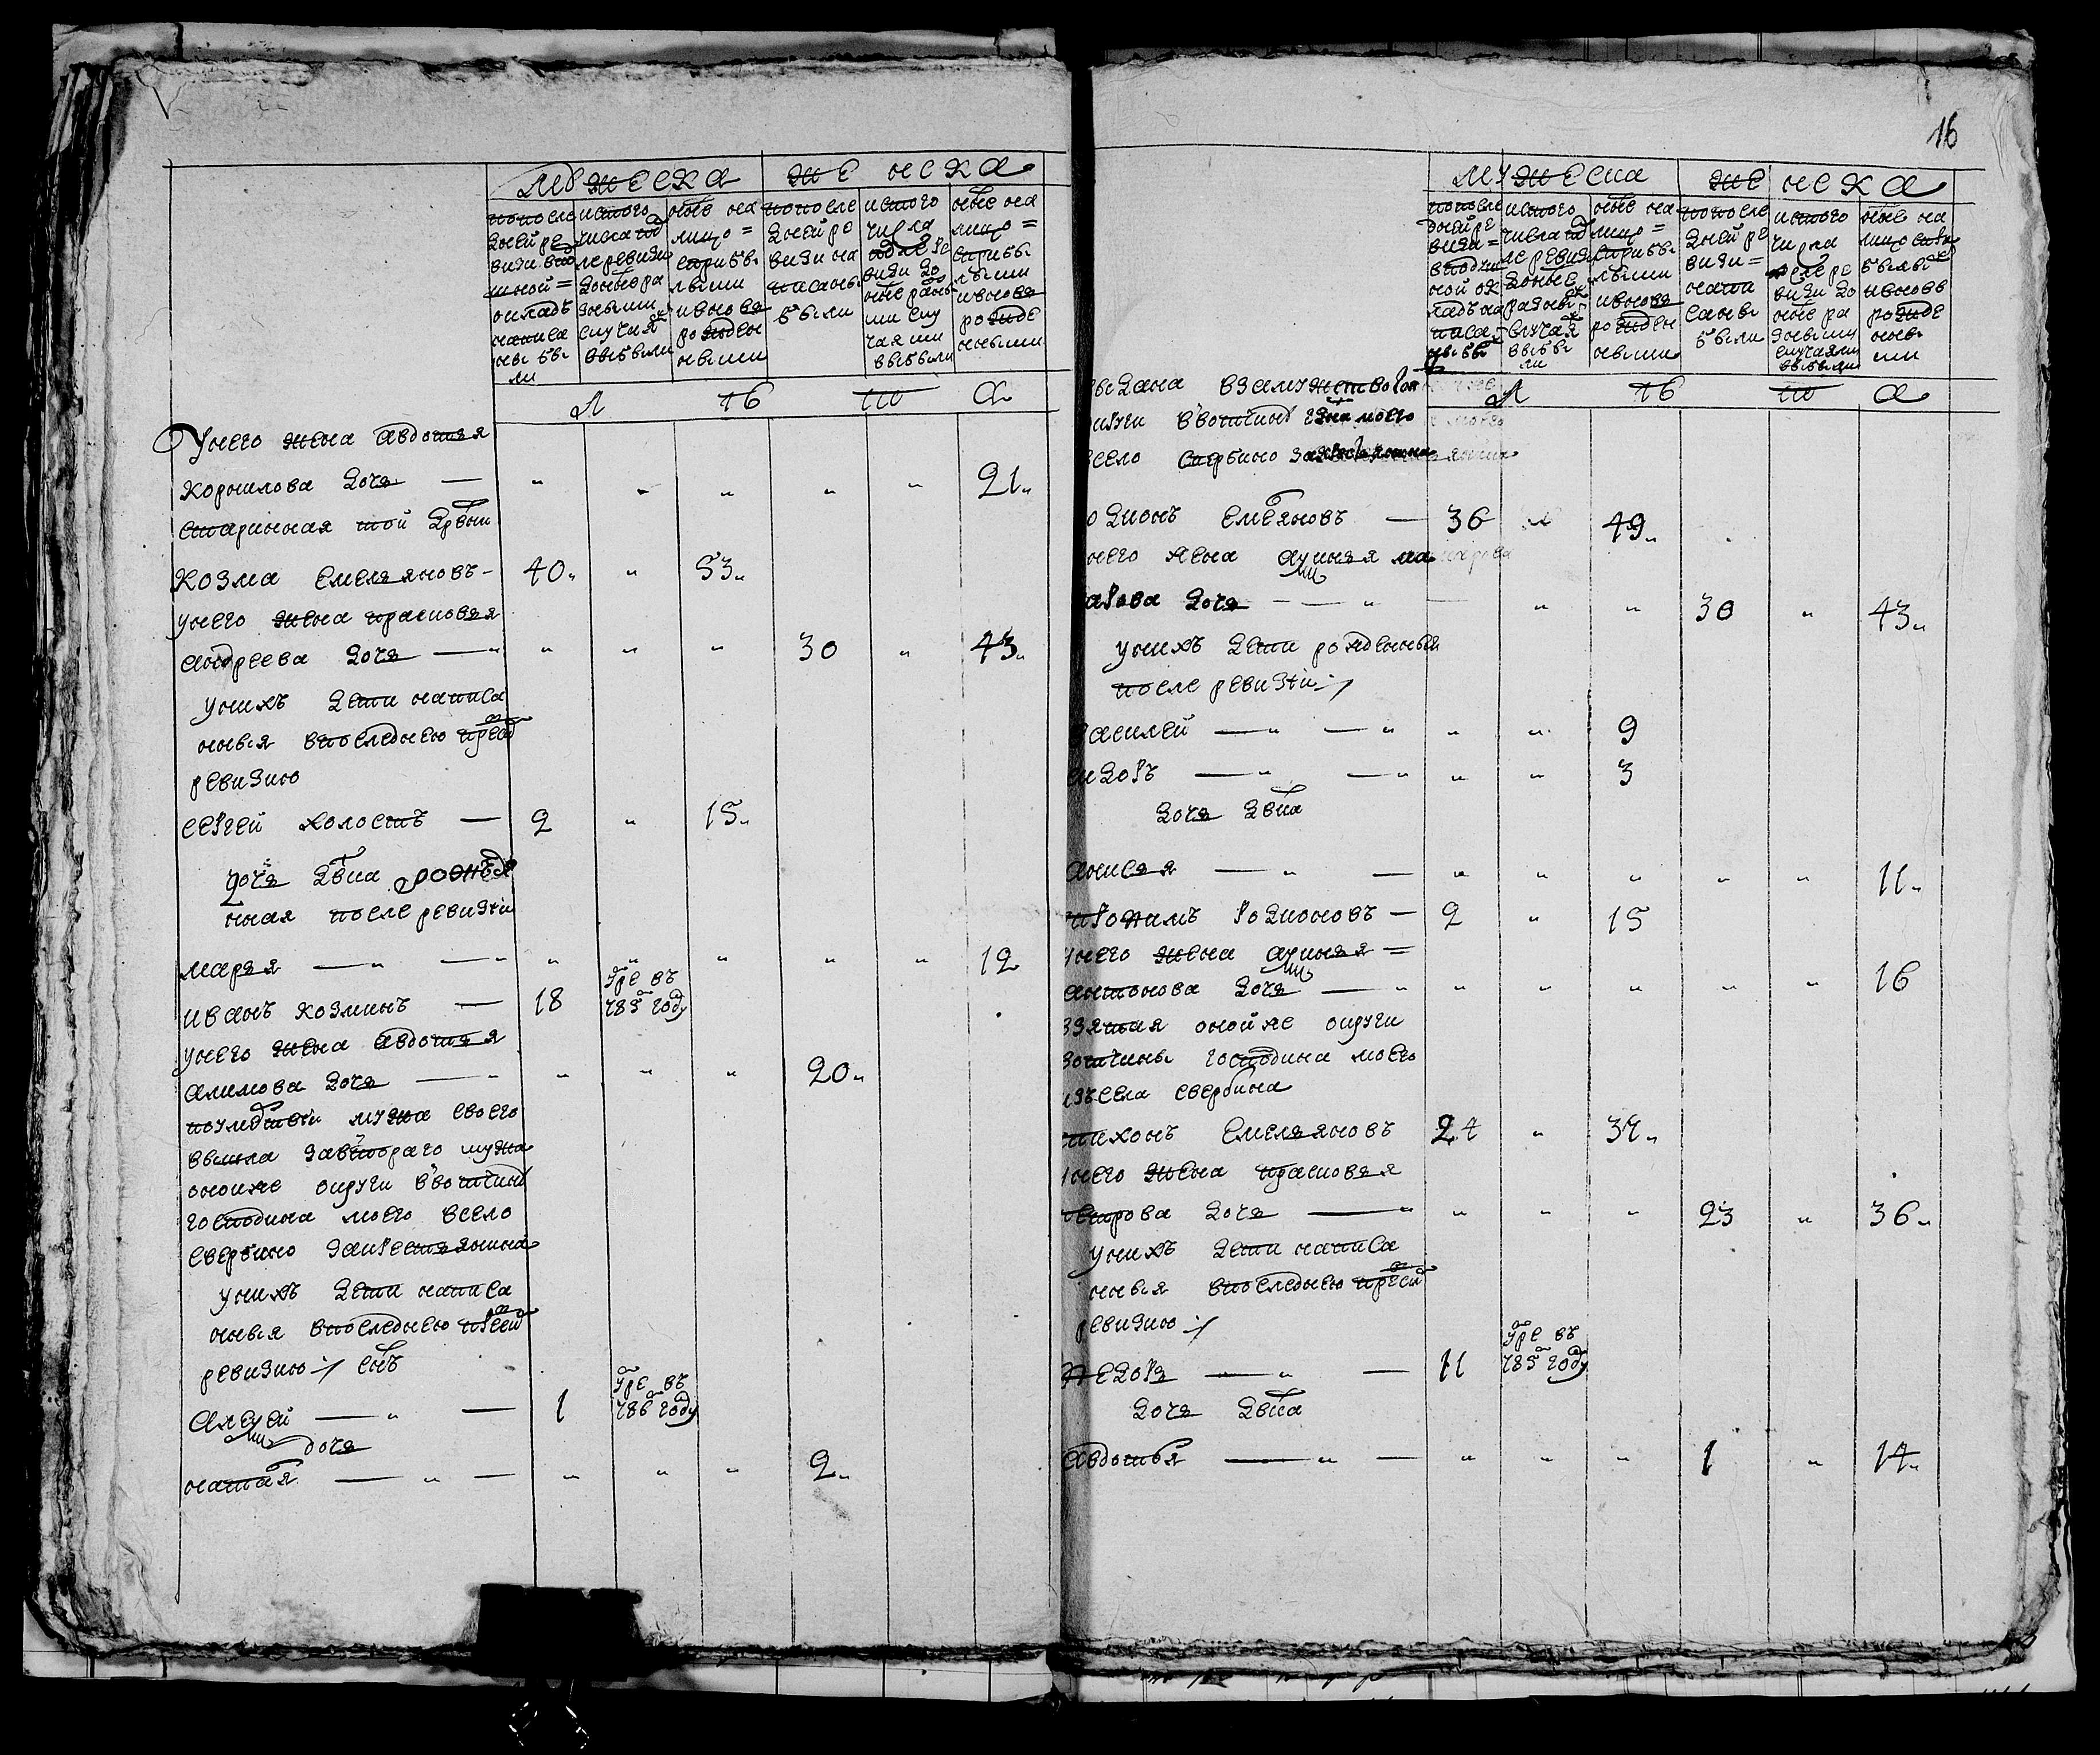 16
мужеска женска
попосле
дней ре
визи под
шной
окладъ
написа
ны бы
ли
исього
числа по
сле ревизи
до ныне ра
зными
случаи
выбыли
ныне на
лицо =
с прибы
лыми
и вновь
рожден
ными
попосле
дней ре
визи на
писаны
были
исього
числа
после ре
визи до
ныне разны
ми слу
чаями
выбыли
ныне на
лицо =
с прибы
лыми
и вновь
рожде
нными
л т б ли а
У него жена авдотья
корнилова дочь — " " " " " 21"
старинная той дрвни
козма емельяновъ - 40" " 53"
у него жена прасковья
андреева дочь — " " " " 30 " 43"
у нихъ дети написа
нныя в последнею пред
ревизию
сергей холостъ — 2 " 15"
дочь двка рожде
нная после ревизïи
марья — " — " " " " " " 12
иванъ козминъ — 18 умре въ
785 году
у него жена авдотья
алимова дочь — " " " " 20"
по умертви мужа своего
вышла за втораго мужа
оной же округи в вотчине
господина моего в село
свербино за крестьянина
у нихъ дети написа
нныя в последнею пред
ревизию :/ сынъ
алексей — " — 1 умре въ
786 году
дочь
наталья — " — " " " 2"
мужеска женска
попосле
дней ре
визи =
в подуш
ной ок
ладъ на
писа
ны бы
исього
числа по
сле ревизи
до ныне
разны
случая
выбы
ли
ныне на
лицо =
с прибы
лыми
и вновь
рожден
ными
попосле
дней ре
визи =
напи
саны
были
исього
числа
после ре
визи до
ныне ра
зными
случаями
выбыли
ныне на
лицо спри
былы
и вновь
рожде
нны
ми
л т б ли а
выдана в замужство той
округи в вотчине гдна моего
в село свербино за крестьянина
родионъ емельяновъ — 36 " 49"
у него жена аксинья ма
карова дочь — — " — " " 30 " 43"
у нихъ дети рожденныя
после ревизïи :/
василей — " — " " " 9
сидоръ — " — " " " 3
дочь двка
анисья — " — " " " " " 11"
трофимъ родионовъ — 2 " 15
у него жена аксинья =
антонова дочь — " " " " " " 16
взятая оной же округи
вотчины господина моего
изъ села свербина
тихонъ емельяновъ 24 " 37"
у него жена прасковья
петрова дочь — " " " " 23 " 36"
у нихъ дети написа
нныя в последнею пред
ревизию :/
федоръ — " — 11 умре въ
785 году
дочь двка
авдотья — " — " " " 1 " 14"